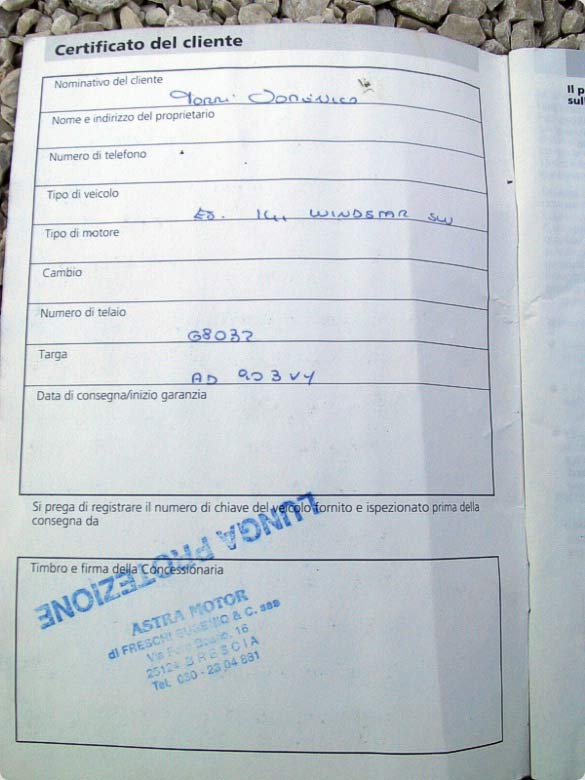 Certificato del cliente
Nominativo del cliente
Torri Domenico
Nome e indirizzo del proprietario
Numero di telefono
Tipo di veicolo
WINDSTAR SW
Tipo di motore
Cambio
Numero di telaio
G8037
Targa
AD 903 VY
Data di consegna/inizio garanzia
Si prega di registrare il numero di chiave del veicolo fornito e ispezionato prima della
consegna da
LUNGA PROTEZIONE
Timbro e firma della Concessionaria
ASTRA MOTOR
di FRESCHI EUGENIO & C. sas
Via 16
25124 BRESCIA
Tel. 030 - 23 04 881
Il p
sull